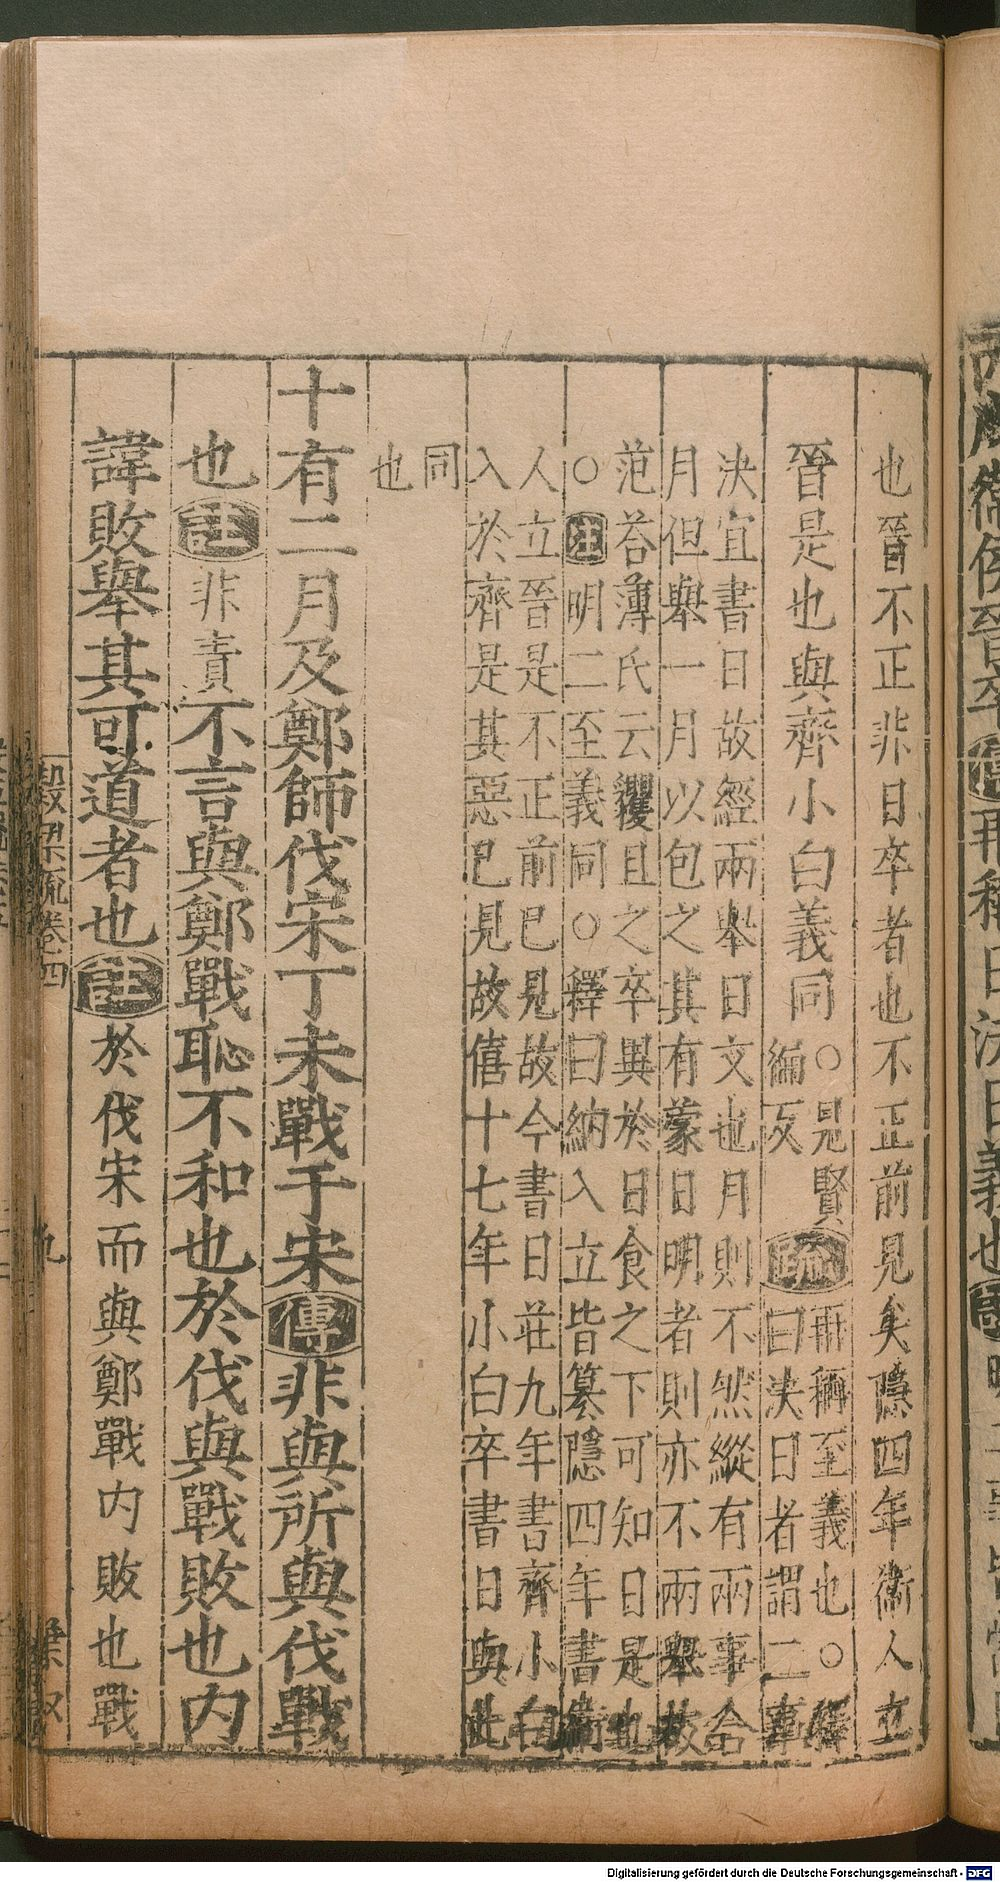 衛侯晉卒傳再稱日決日義也註
也晉不正非日卒者也不正前見矣隱四年衛人立
晉是也與齊小白義同○見賢
編反
疏再稱至義也○釋
曰決日者謂二事
決宜書日故經兩舉日文也月則不然縱有兩事合
月但舉一月以包之其有蒙日明者則亦不兩舉故
范荅薄氏云玃且之卒異於日食之下可知日是也
○注明二至義同○釋曰納入立皆篡隱四年書衛
人立晉是不正前已見故今書日莊九年書齊小白
入於齊是其惡已見故僖十七年小白卒書日與此
同
也
十有二月及鄭師伐宋丁未戰于宋傳非與所與伐戰
也註非責不言與鄭戰恥不和也於伐與戰敗也內
諱敗舉其可道者也註於伐宋而與鄭戰內敗也戰
穀梁疏卷四
九
Digitalisierung gefördert durch die Deutsche Forschungsgemeinschaft - DFG